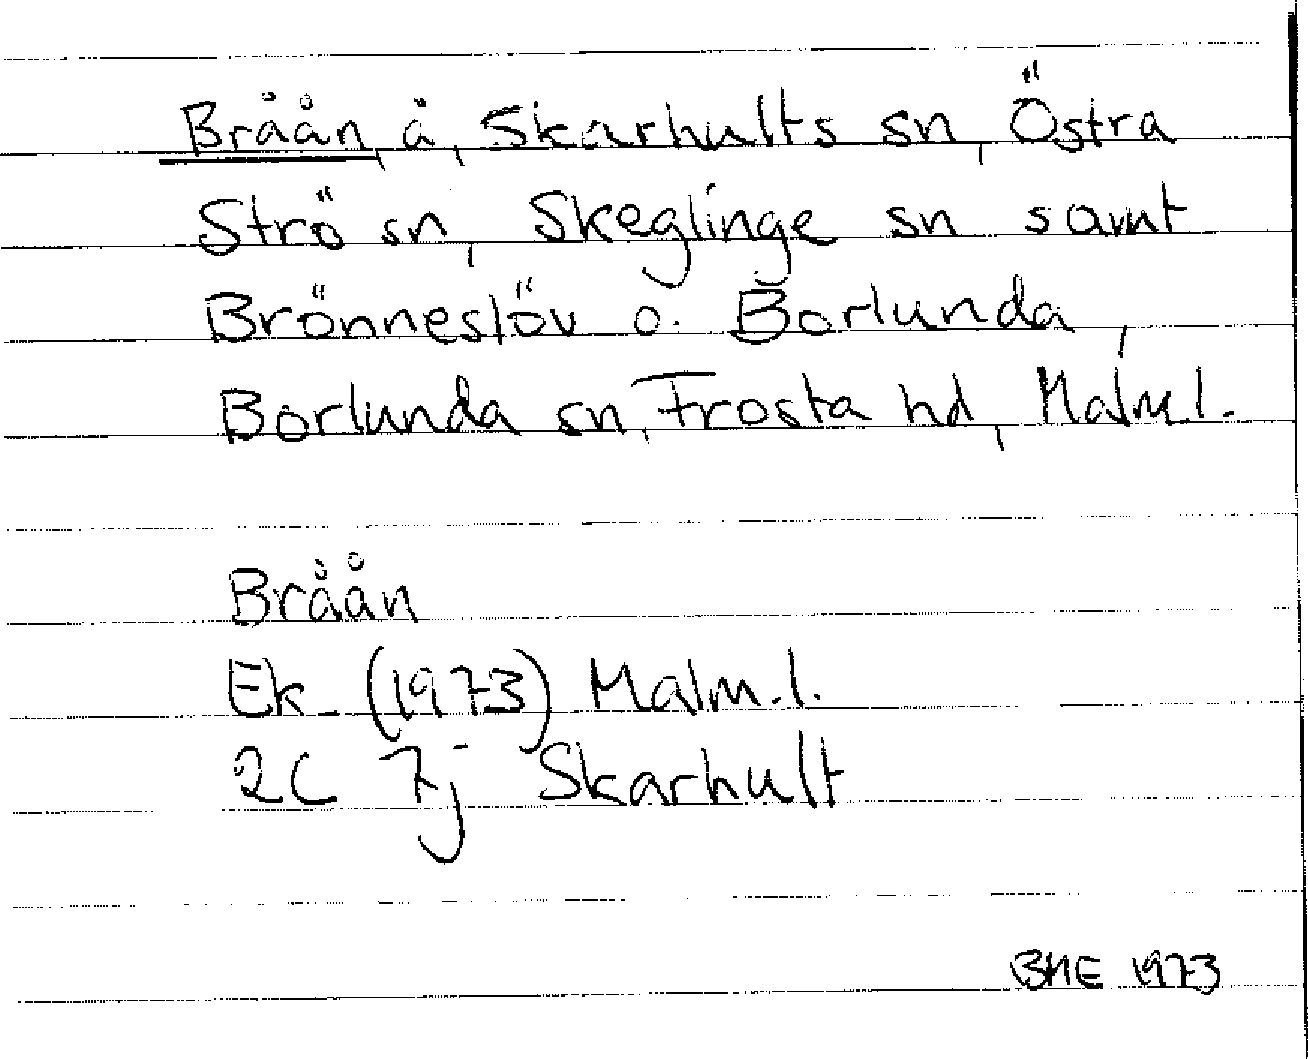 Bråån, å, Skarhults sn, Östra
Strö sn, Skeglinge sn samt
Brönneslöv o. Borlunda,
Borlunda sn, Frosta hd, Malm.l.
Bråån
Ek. (1973) Malm.l.
2C 7j Skarhult
BME 1973